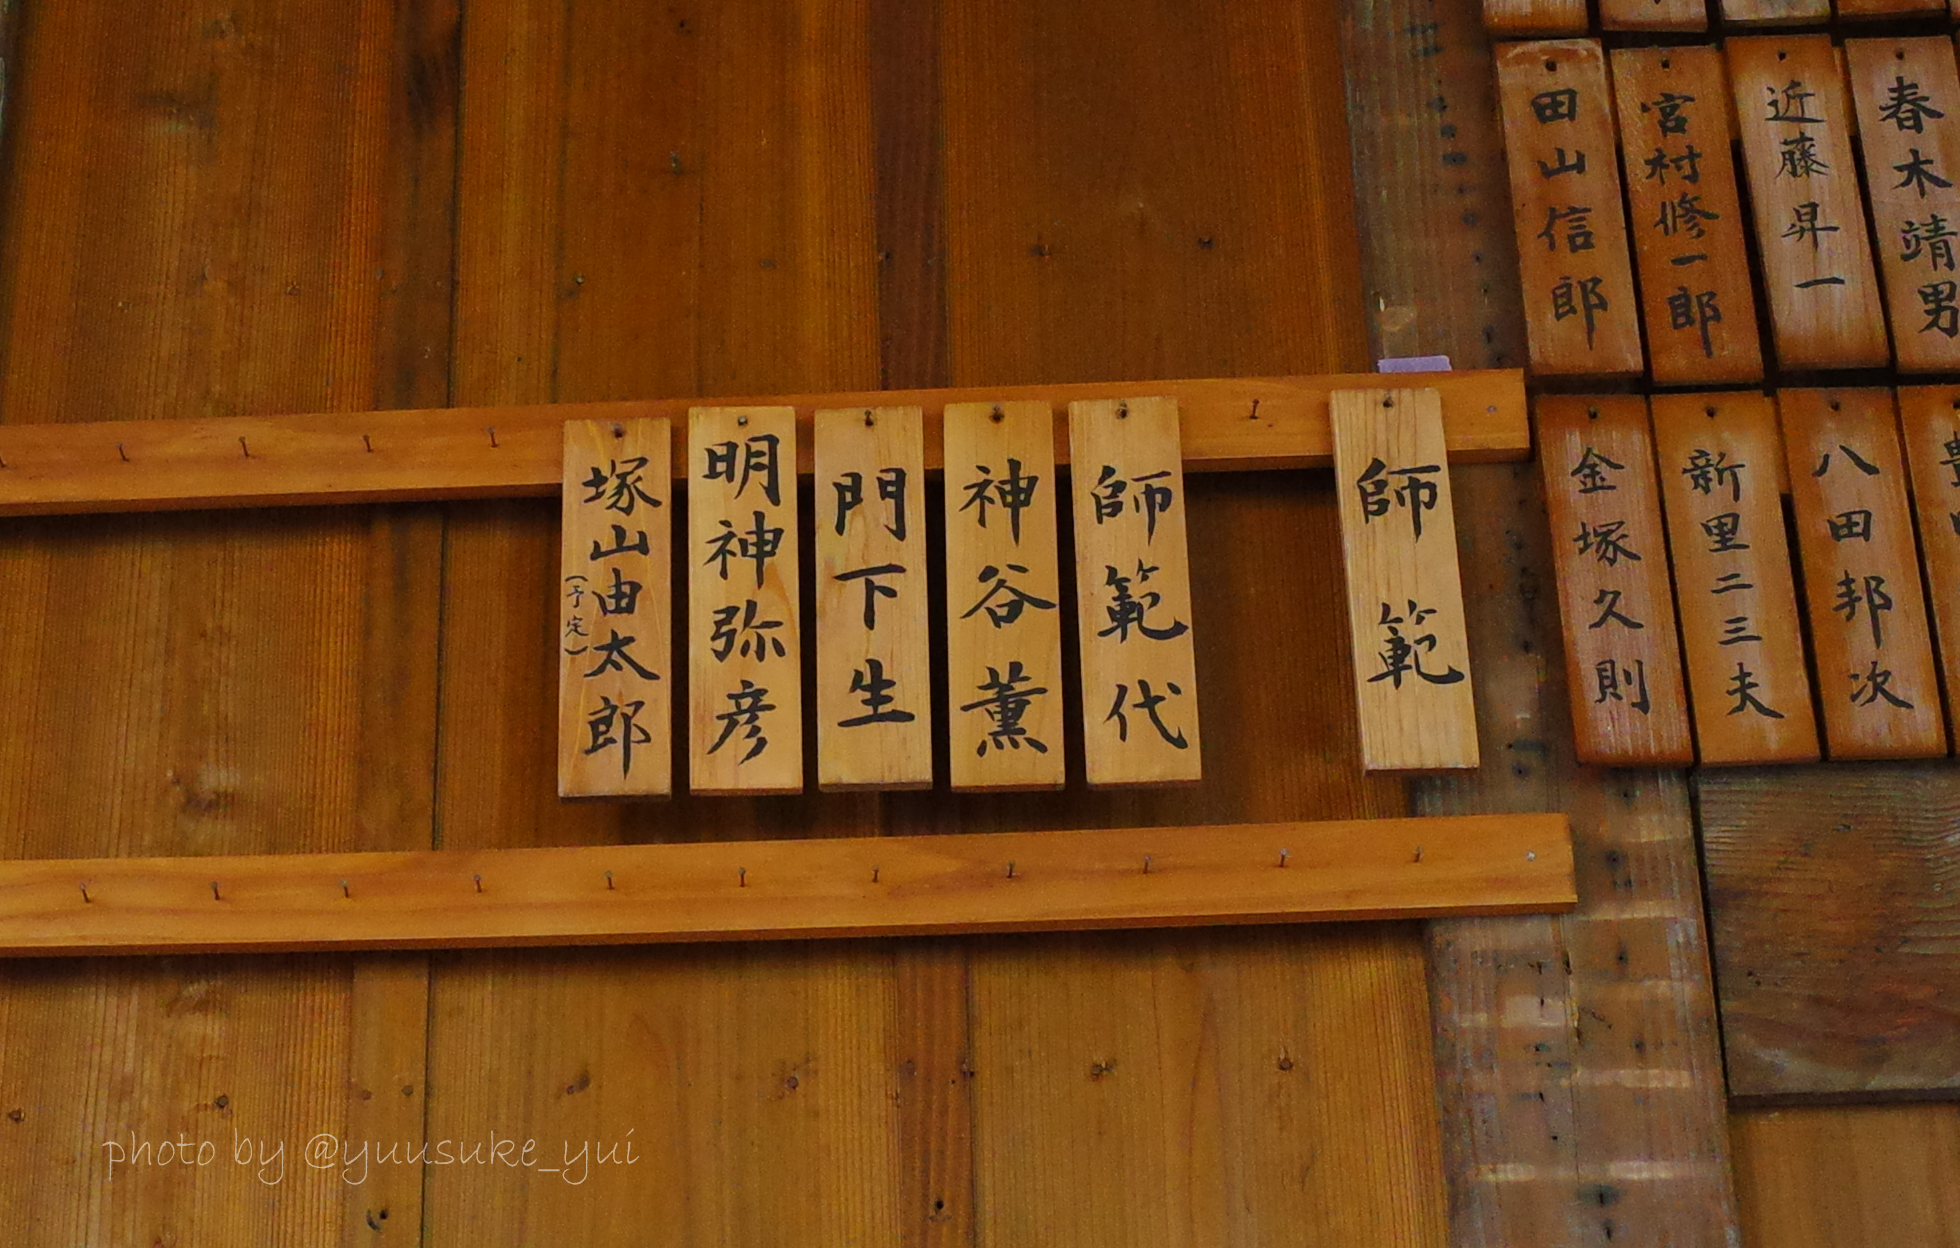 春木靖男
近藤昇一
宮村修一郎
田山信郎
八田邦次
新里二三夫
金塚久則
師範
師範代
神谷薫
門下生
明神弥彦
塚山由太郎
(予定)
photo by @yuusuke_yui